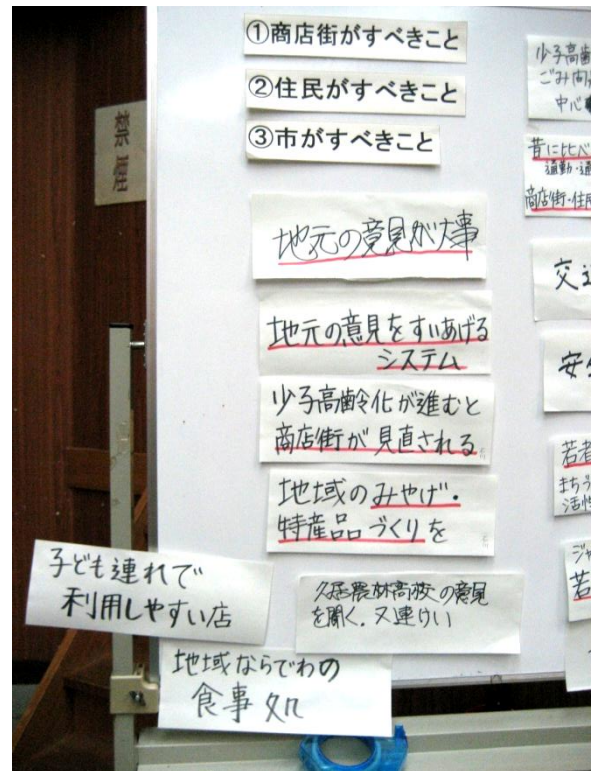 ①商店街がすべきこと
②住民がすべきこと
③市がすべきこと
禁煙
地元の意見が大事
地元の意見をすいあげる
システム
少子高齢化が進むと
商店街が見直される
地域のみやげ・
特産品づくりを
子ども連れで
利用しやすい店
久居農林高校の意見
を聞く.又連けい
地域ならでわの
食事処
少子高齢
ごみ問
中心
昔に比べ
通勤・通
商店街・住民
交通
安
若者
まちづ
活性
ジャ
若